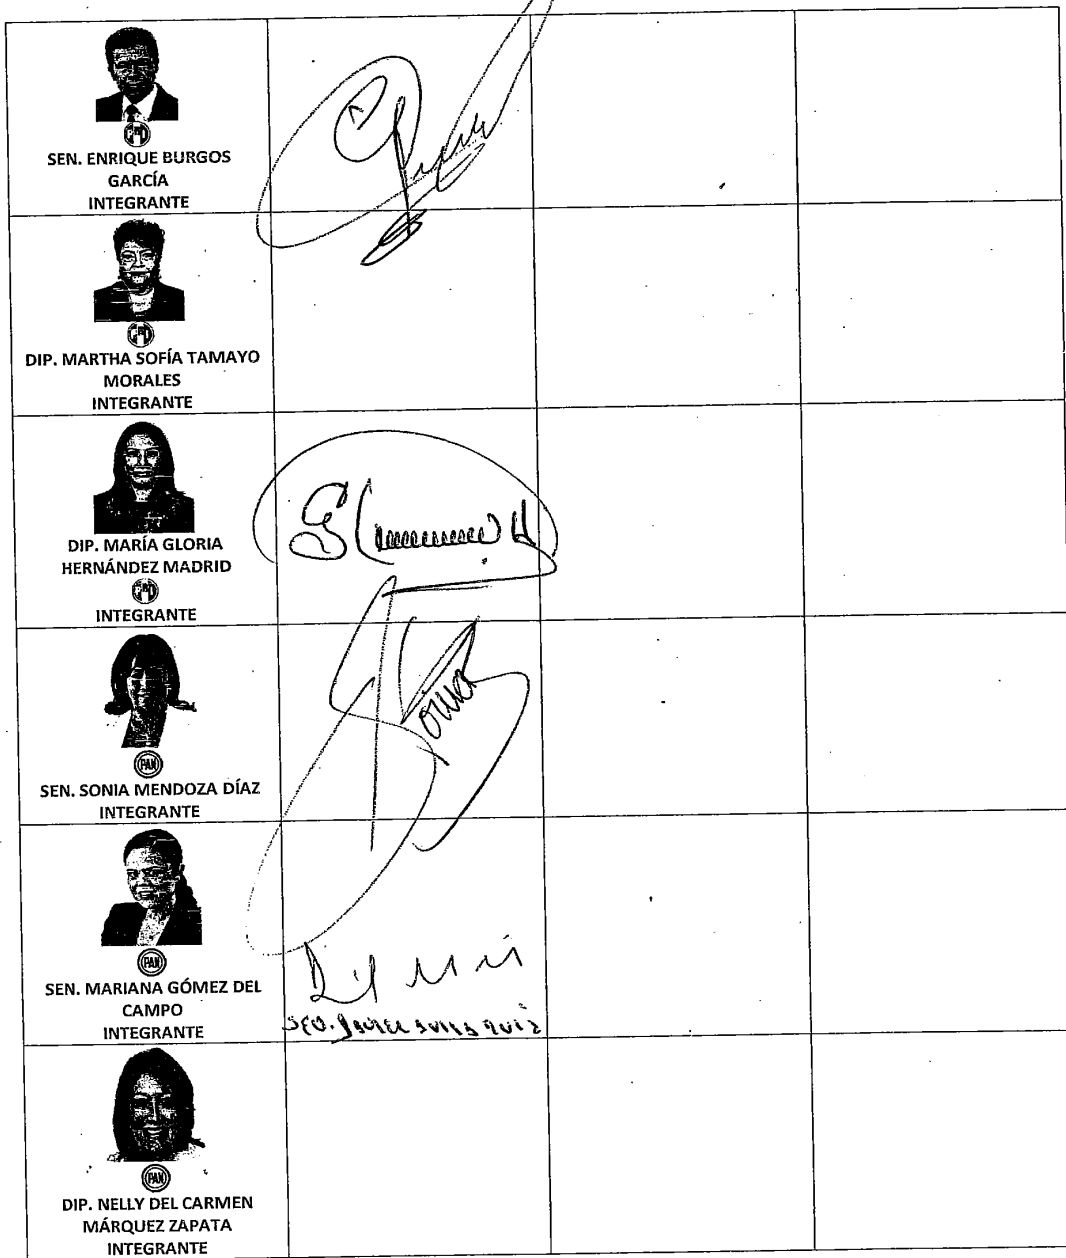 PRI
SEN. ENRIQUE BURGOS
GARCÍA
INTEGRANTE
PRI
DIP. MARTHA SOFÍA TAMAYO
MORALES
INTEGRANTE
DIP. MARÍA GLORIA
HERNÁNDEZ MADRID
PRI
INTEGRANTE
PAN
SEN. SONIA MENDOZA DÍAZ
INTEGRANTE
PAN
SEN. MARIANA GÓMEZ DEL
CAMPO
INTEGRANTE
PAN
DIP. NELLY DEL CARMEN
MÁRQUEZ ZAPATA
INTEGRANTE